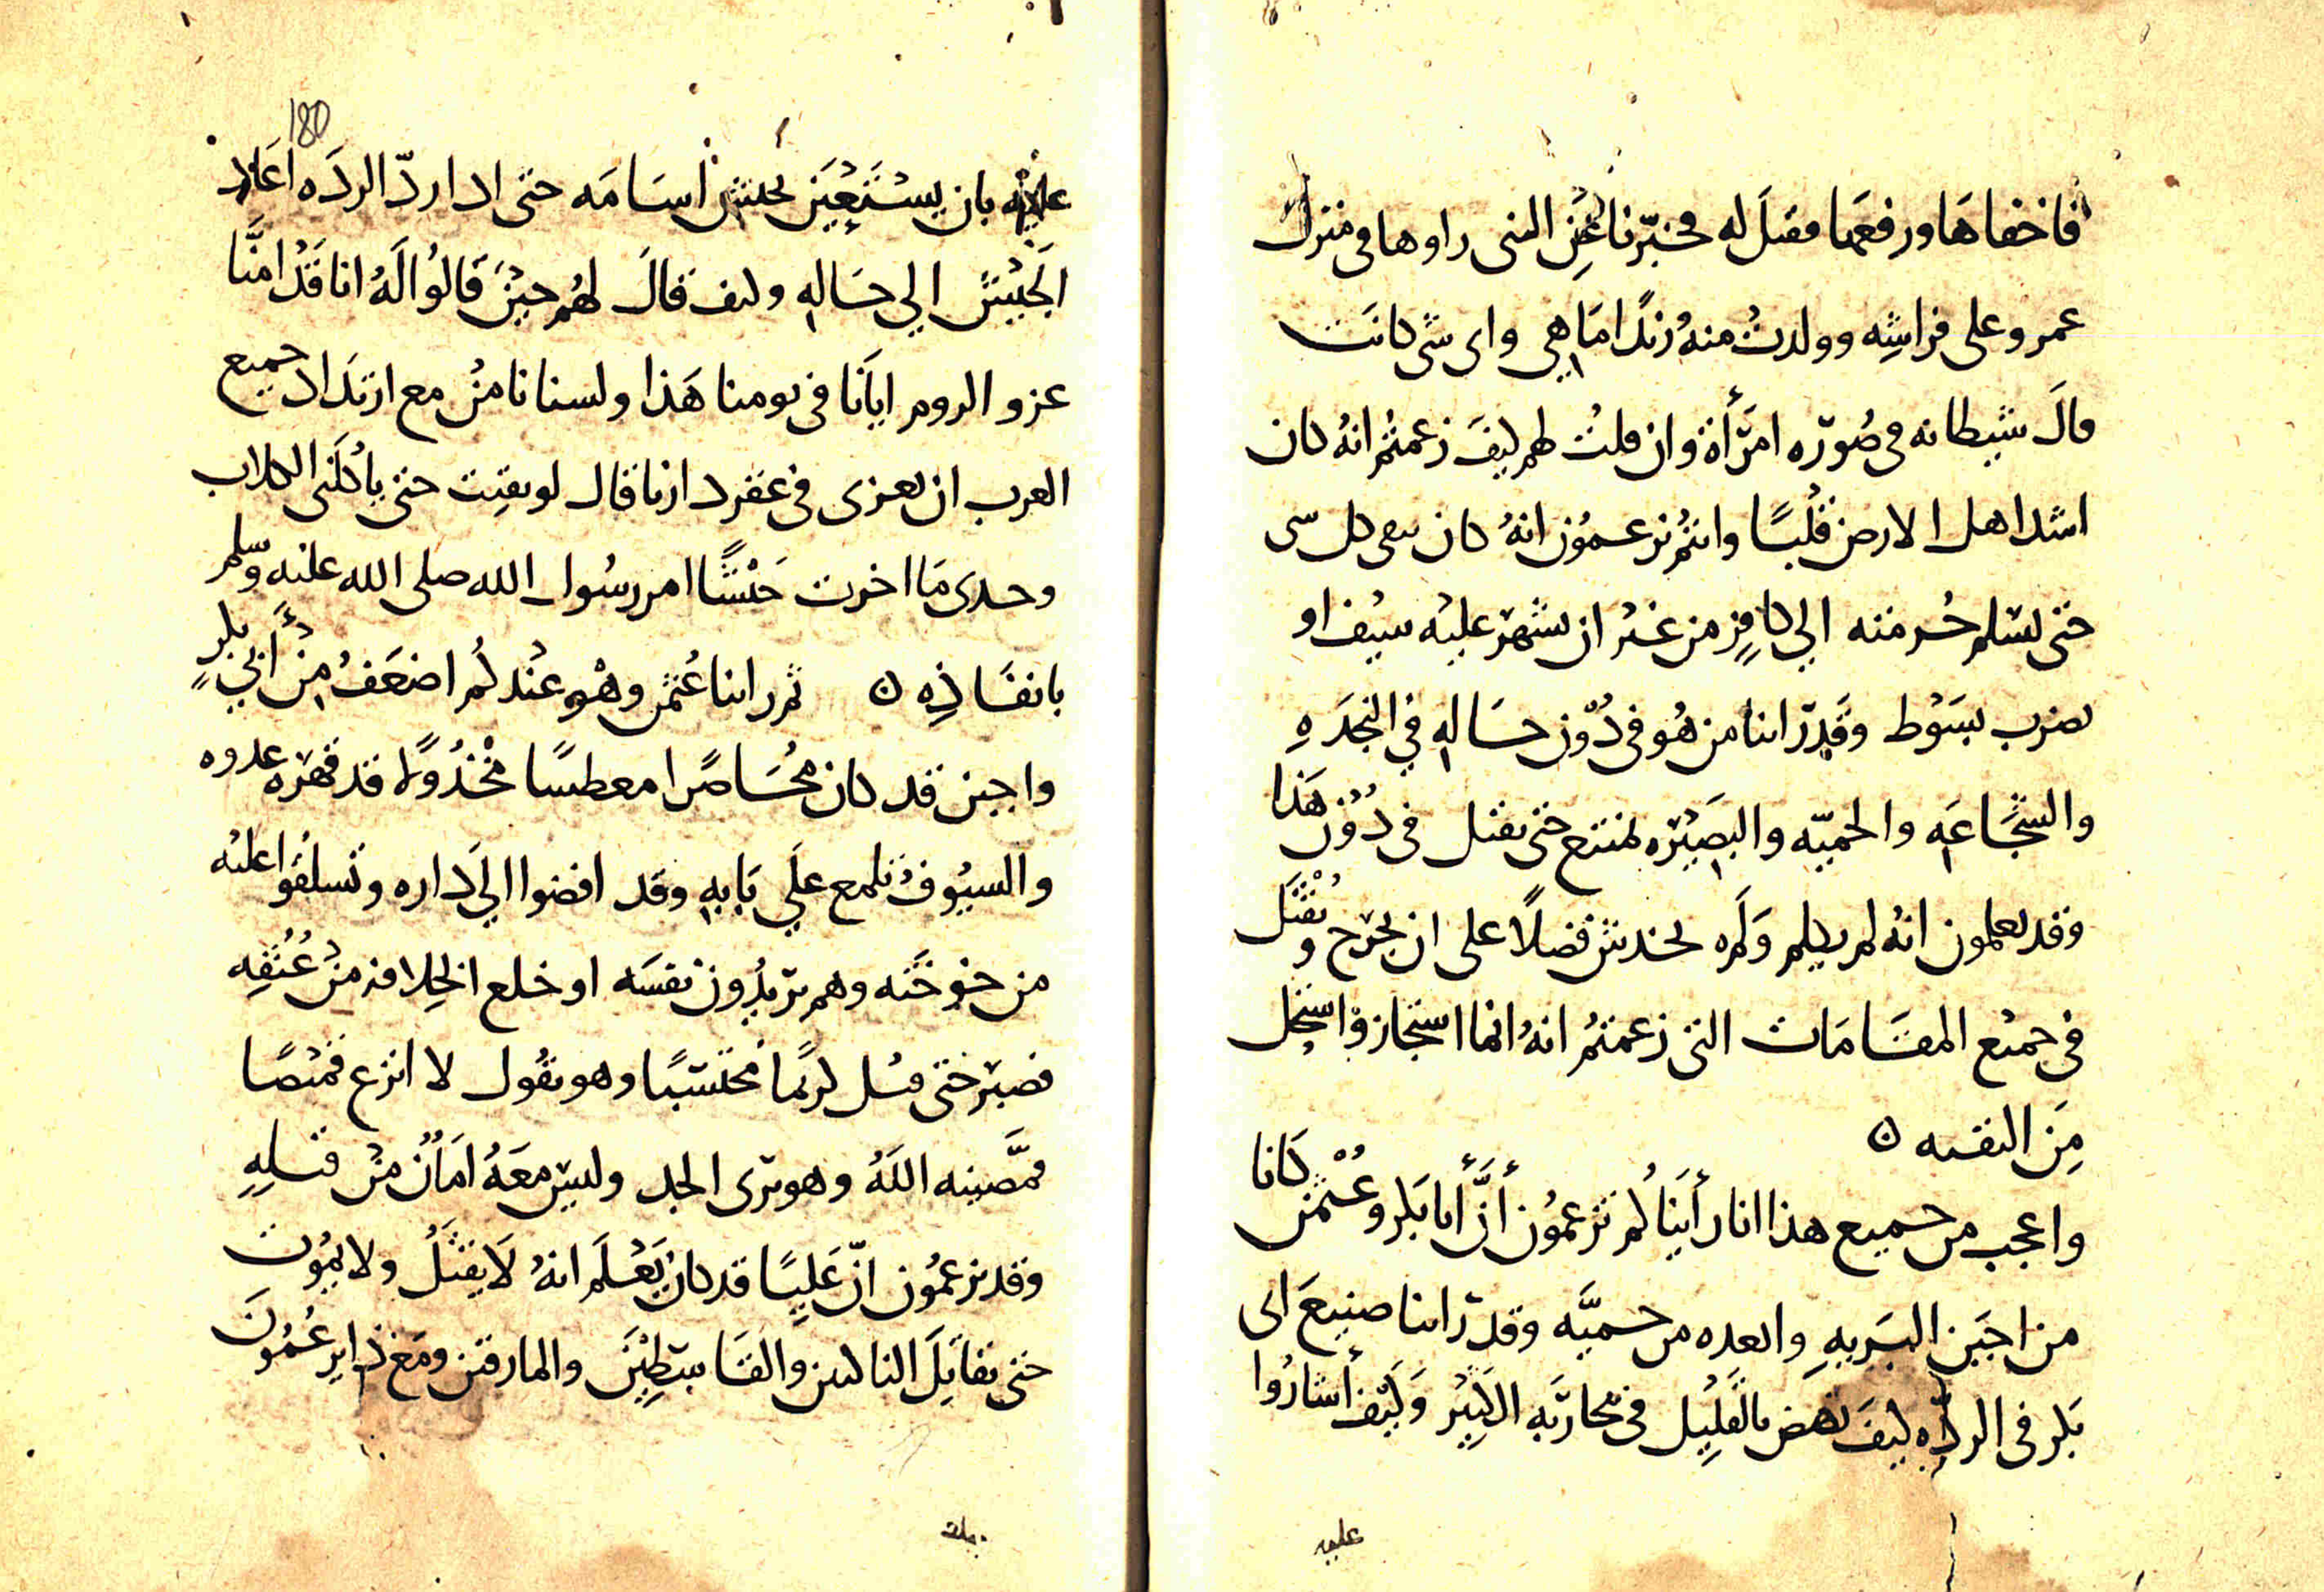 فاخفاها ورفعها فقيل له فخبّرنا عن التي راوها في منزل
عمرو على فراشه وولدت منه زيدًا ما هي واي شي كانت
قال شيطانه في صورة امرأة وان قلت لهم كيف زعمتم انه كان
اشد اهل الارض قلبًا وانتم تزعمون انه كان يتقي كل شي
حتى يسلم حرمته الي كافر من غير ان يشهر عليه سيف او
يضرب بسوط وقد راينا من هو في دون حاله في النجدة
والشجاعة والحمية والبصيرة يمتنع حتى يقتل في دون هذا
وقد تعلمون انه لم يكلم ولم يخدش فضلًا على ان يجرح ويقتل
في جميع المقامات التي زعمتم انه انما استجاز واستحل
من التقيه ٥
واعجب من جميع هذا انا رأيناكم تزعمون أنّ أبا بكر وعثمن كانا
من اجبن البرية وابعده من حمية وقد راينا صنيع ابي
بكر في الردّه كيف نهض بالقليل في محاربة الكثير وكيف أشاروا
عليه
180
عليه بان يستعين بجيش اسامه حتى اذا ردّ الردة اعاد
الجيش الي حاله وكيف قال لهم حين قالوا له انا قد امنّا
غزو الروم ايانا في يومنا هذا ولسنا نامن مع ارتداد جميع
العرب ان نغزى في عقر دارنا قال لو بقيت حتى تأكلني الكلاب
وحدي ما اخرت جيشًا امر رسول الله صلى الله عليه وسلم
بانفاذه ٥ ثم راينا عثمن وهو عندكم اضعف من أبي بكر
واجبن قد كان محاصرا معطشا مخذولًا قد قهره عدوه
والسيوف تلمع علي بابه وقد افضوا الي داره وتسلقوا عليه
من خوخته وهم يريدون نفسه او خلع الخلافة من عنقه
فصبر حتى قتل كريمًا محتسبًا وهو يقول لا انزع قميصًا
قمّصنيه الله وهو يرى الجد وليس معه امان من قتله
وقد تزعمون انّ عليًا قد كان يعلم انه لا يقتل ولا يموت
حتى يقاتل الناكثين والقاسطين والمارقين ومع ذا يزعمون